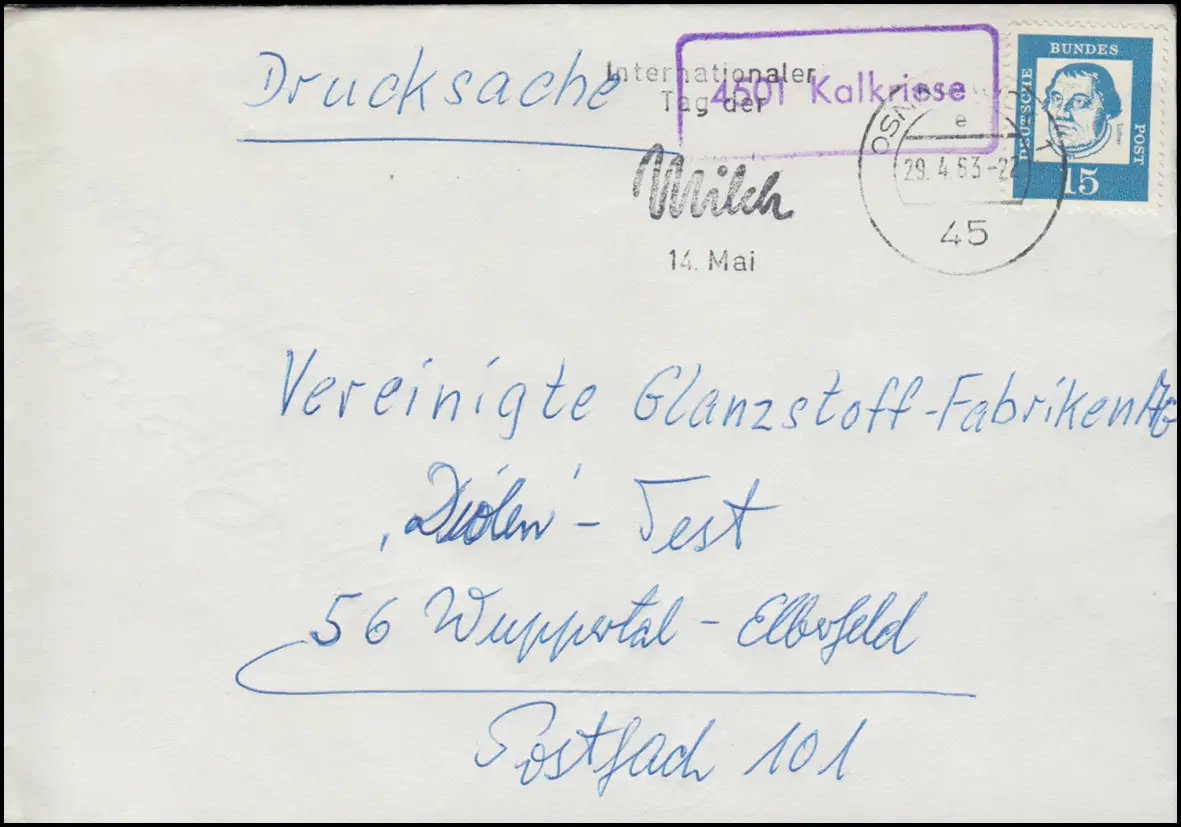 Drucksache
Internationaler
Tag der
Milch
14. Mai
4501 Kalkriese
OSN
e
29. 4. 63-22
45
DEUTSCHE
BUNDES
POST
Luther
15
Vereinigte Glanzstoff-Fabriken AG
'Diolen' - Test
56 Wuppertal - Elberfeld
Postfach 101